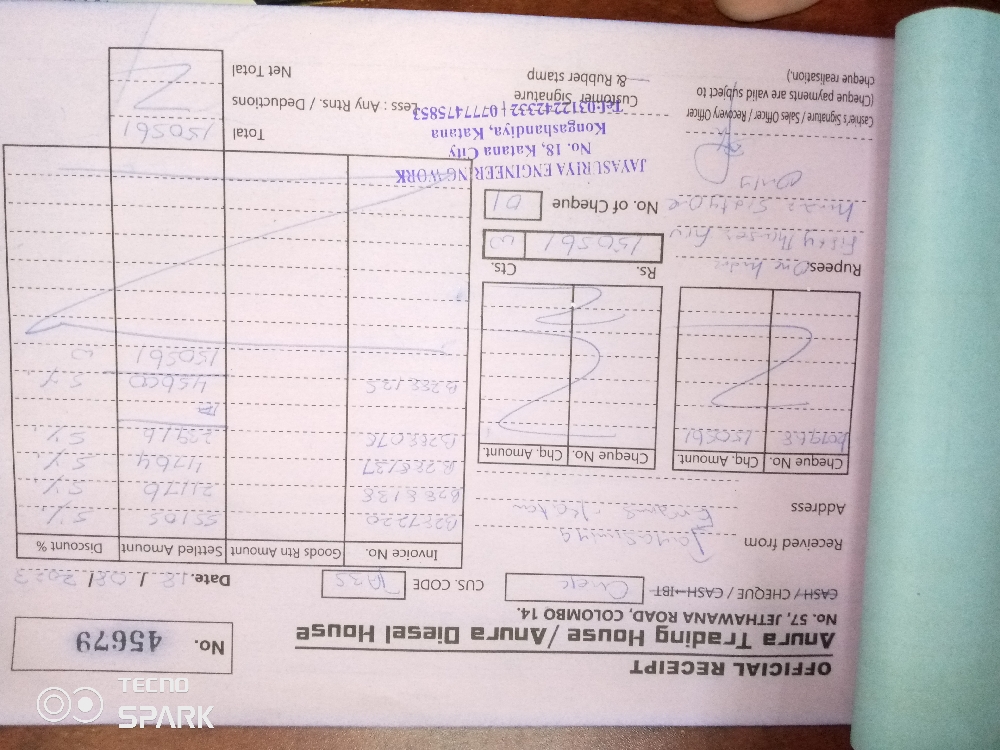 OFFICIAL RECEIPT
Anura Trading House / Anura Diesel House
No. 57, JETHAWANA ROAD, COLOMBO 14.
No. 45679
CASH / CHEQUE / CASH IBT
CUS. CODE
Date. 18 / 08 / 2023
Received from Jayasuriya
Address
Cheque No. Chq. Amount
150561
Cheque No. Chq. Amount.
Rupees. One
Only
Rs. Cts.
150561
No. of Cheque 01
JAYASURIYA ENGINEERING WORK
No. 18, Katana City
Kongashandiya, Katana
Tel: 0312242332 | 0777475853
Cashier's Signature / Sales Officer / Recovery Officer
(Cheque payments are valid subject to
cheque realisation.)
Customer Signature
& Rubber stamp
Invoice No. Goods Rtn Amount Settled Amount Discount %
B287220 55105 5%
B288138 21176 5%
B288137 11764 5%
B288076 5%
B288125 45600 5%
150561
Total 150561
Less : Any Rtns. / Deductions
Net Total
TECNO
SPARK